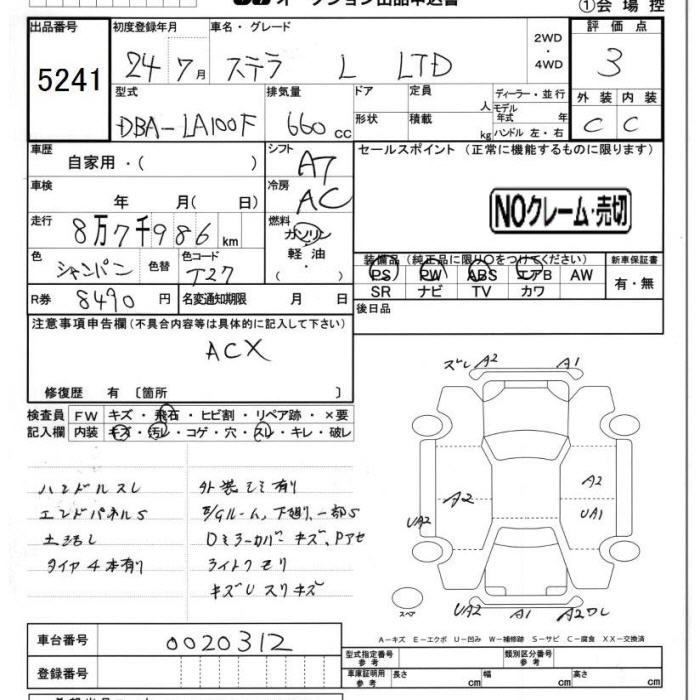 オークション出品申込書
①会場控
出品番号
5241
初度登録年月
24 7月
車名・グレード
ステラ L LTD
2WD
・
4WD
評価点
3
型式
DBA-LA100F
排気量
660 cc
ドア
形状
定員
人
積載
kg
ディーラー・並行
モデル
年式 年
ハンドル 左・右
外装
内装
C
C
車歴
自家用・( )
シフト
A7
セールスポイント (正常に機能するものに限ります)
車検
年 月( 日)
冷房
AC
NOクレーム・売切
走行
8万7千986km
燃料
ガソリン
軽油
・
( )
色
シャンパン
色替
色コード
T27
装備品(純正品に限り○をつけてください)
PS PW ABS エアB AW
SR ナビ TV カワ
新車保証書
有・無
R券
8490円
名変通知期限 月 日
後日品
注意事項申告欄(不具合内容等は具体的に記入して下さい)
ACX
修復歴 有 〔箇所 〕
検査員
記入欄
FW キズ・飛石・ヒビ割・リペア跡・×要
内装 キズ・汚レ・コゲ・穴・スレ・キレ・破レ
ハンドルスレ
エンドパネルS
タイヤ4本有り
E/Gルーム、下廻り、一部S
Dミラーカバーキズ、Pアセ
ライトクモリ
ズレ A2 A1
A2
A2
UA1
UA2
スペア
UA2 A1 A2ワレ
A-キズ E-エクボ U-凹み W-補修跡 S-サビ C-腐食 XX-交換済
車台番号
0020312
登録番号
型式指定番号
参考
類別区分番号
参考
車庫証明用
参考
長さ cm
幅 cm
高さ cm